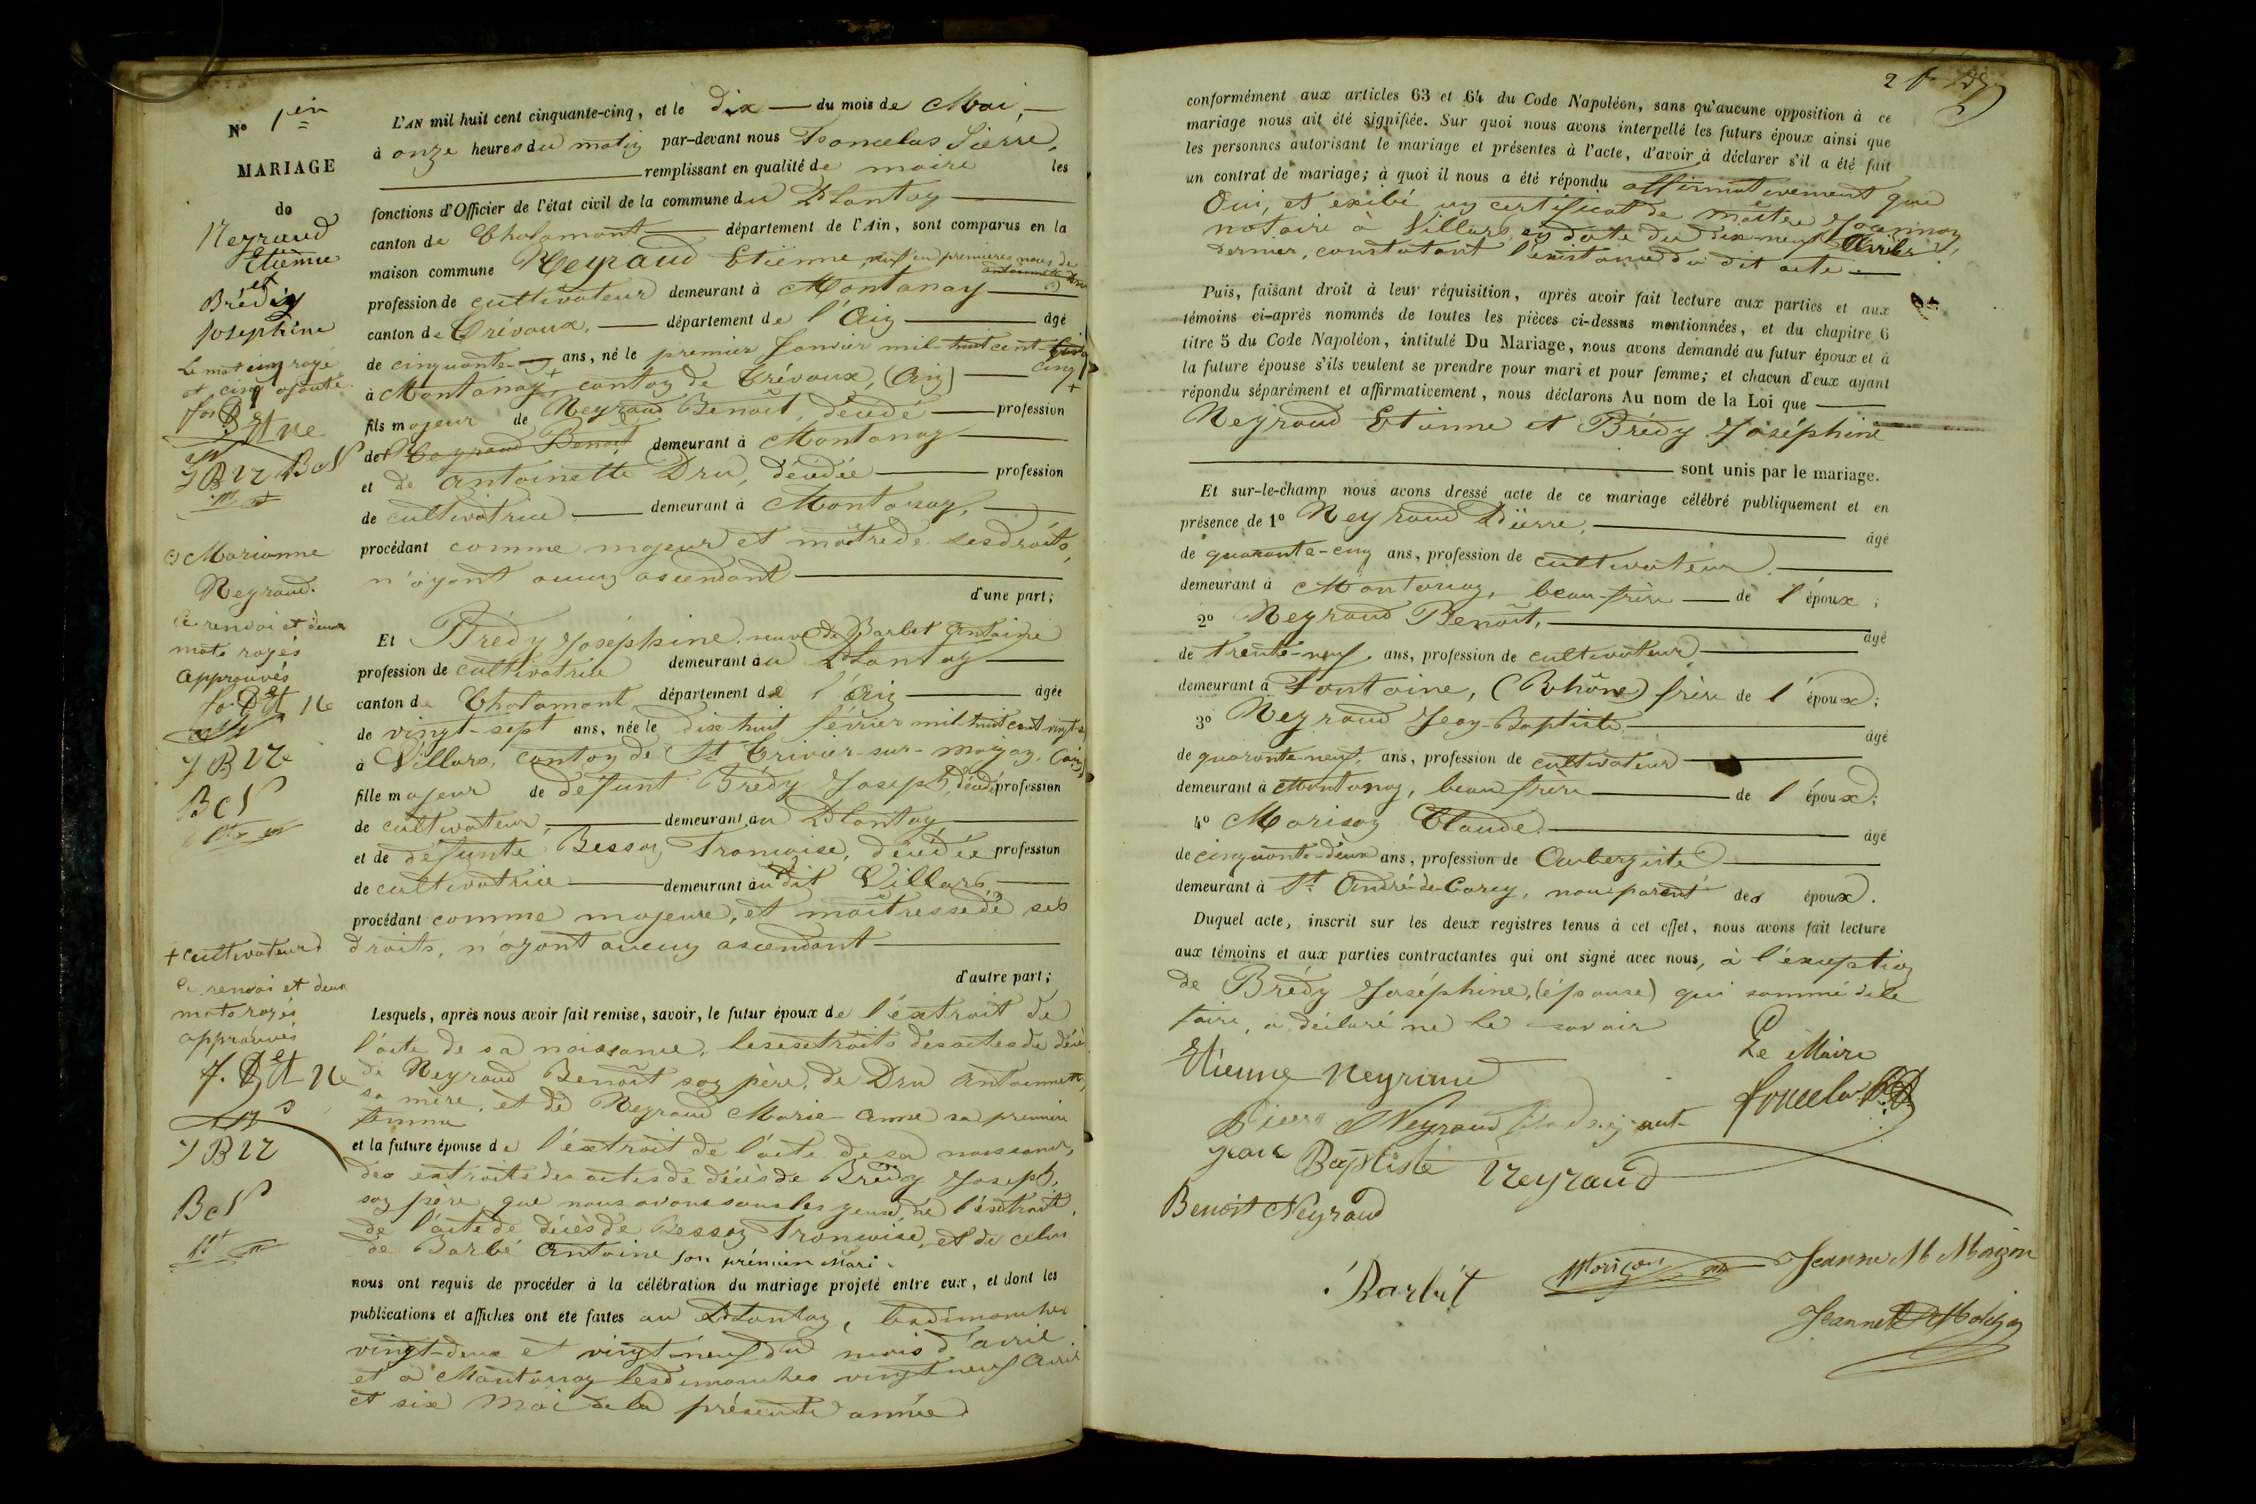 N° 1er
MARIAGE
de
Neyraud
Etienne
et
Brédy
Joséphine
Le mot cinq rayé
et cinq ajouté
J B N
B c N
(1) Marianne
Neyraud.
Ce renvoi et deux
mots rayés
approuvés
J B N
B c N
+ cultivateur
Ce renvoi et deux
mots rayés
approuvés
J B N
B c N
L'AN mil huit cent cinquante-cinq, et le dix du mois de Mai,
à onze heures du matin par-devant nous Pierre,
remplissant en qualité de maire les
fonctions d'Officier de l'état civil de la commune du Plantay
canton de Chalamont département de l'Ain, sont comparus en la
maison commune Neyraud Etienne, veuf en premières noces de
antoinette Dru
profession de cultivateur demeurant à Montanay
canton de Trévoux, département de l'Ain âgé
de cinquante ans, né le premier Janvier mil-huit cent cinq
à Montanay + canton de Trévoux, (Ain)
fils majeur de Neyraud Benoît, décédé profession
de Neyraud Benoit, demeurant à Montanay
et de Antoinette Dru, décédée profession
de cultivatrice demeurant à Montanay,
procédant comme majeur et maître de ses droits,
n'ayant aucun ascendant
d'une part;
Et Brédy Joséphine, veuve de Barbet Antoine
profession de cultivatrice demeurant au Plantay
canton de Chalamont, département de l'Ain âgée
de vingt-sept ans, née le dix huit février mil huit cent vingt-
à Villars, canton de St Trivier-sur-Moignan, (Ain)
fille majeur de défunt Brédy Joseph, décédé profession
de cultivateur, demeurant au Plantay
et de défunte Besson Françoise, décédée profession
de cultivatrice demeurant au dit Villars
procédant comme majeure, et maîtresse de ses
droits, n'ayant aucun ascendant
d'autre part;
Lesquels, après nous avoir fait remise, savoir, le futur époux de l'extrait de
l'acte de sa naissance, les extraits des actes de décès
de Neyraud Benoît son père, de Dru Antoinette,
sa mère, et de Neyraud Marie-Anne sa première
femme
et la future épouse de l'extrait de l'acte de sa naissance,
des extraits des actes de décès de Brédy Joseph,
son père, que nous avons sous les yeux, de l'extrait
de l'acte de décès de Besson Françoise, et de celui
de Barbé Antoine son prémier Mari.
nous ont requis de procéder à la célébration du mariage projeté entre eux, et dont les
publications et affiches ont été faites au Plantay, les dimanches
vingt-deux et vingt-neuf du mois d'avril
et à Montanay les dimanches vingt neuf Avril
et six Mai de la présente année
2
conformément aux articles 63 et 64 du Code Napoléon, sans qu'aucune opposition à ce
mariage nous ait été signifiée. Sur quoi nous avons interpellé les futurs époux ainsi que
les personnes autorisant le mariage et présentes à l'acte, d'avoir à déclarer s'il a été fait
un contrat de mariage; à quoi il nous a été répondu affirmativement que
Oui, et exibé un certificat de maître Joannon,
notaire à Villars, en date du dix-neuf Avril
dernier, constatant l'existance du dit acte.
Puis, faisant droit à leur réquisition, après avoir fait lecture aux parties et aux
témoins ci-après nommés de toutes les pièces ci-dessus mentionnées, et du chapitre 6
titre 5 du Code Napoléon, intitulé Du Mariage, nous avons demandé au futur époux et à
la future épouse s'ils veulent se prendre pour mari et pour femme; et chacun d'eux ayant
répondu séparément et affirmativement, nous déclarons Au nom de la Loi que
Neyraud Etienne et Brédy Joséphine
sont unis par le mariage.
Et sur-le-champ nous avons dressé acte de ce mariage célébré publiquement et en
présence de 1° Neyraud Pierre, âgé
de quarante-cinq ans, profession de cultivateur
demeurant à Montanay, beau-frère de l'époux;
2° Neyraud Benoît, âgé
de trente-neuf, ans, profession de cultivateur
demeurant à Fontaine, (Rhône) frère de l'époux;
3° Neyraud Jean-Baptiste, âgé
de quarante-neuf, ans, profession de cultivateur
demeurant à Montanay, beau frère de l'époux;
4° Morison Claude. âgé
de cinquante-deux ans, profession de Aubergiste
demeurant à St André-de-Corcy, non parent des époux.
Duquel acte, inscrit sur les deux registres tenus à cet effet, nous avons fait lecture
aux témoins et aux parties contractantes qui ont signé avec nous, à l'exception
de Brédy Joséphine, (épouse) qui sommé de le
faire, a déclaré ne le savoir
Etienne Neyraud
Le Maire
Pierre Neyraud
Jean Baptiste Neyraud
Benoit Neyraud
Barbét
Morizon
Jeanne M Morizon
Jeannet